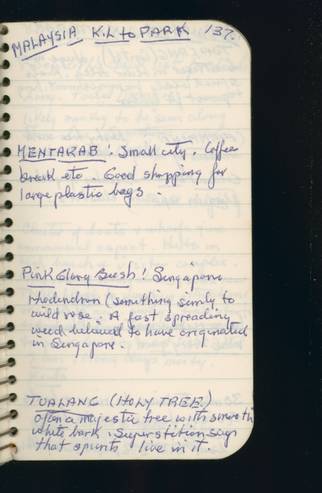 MALAYSIA K.L to PARK 137.
MENTAKAB! Small city. Coffee
break etc. Good shopping for
large plastic bags.
Pink Glory Bush! Singapore
rhodindron (something simly to
wild rose. A fast spreading
weed believed to have originated
in Singapore.
TUALANG (HOLY TREE)
often a majestic tree with smooth
white bark. Superstition says
that spirits live in it.